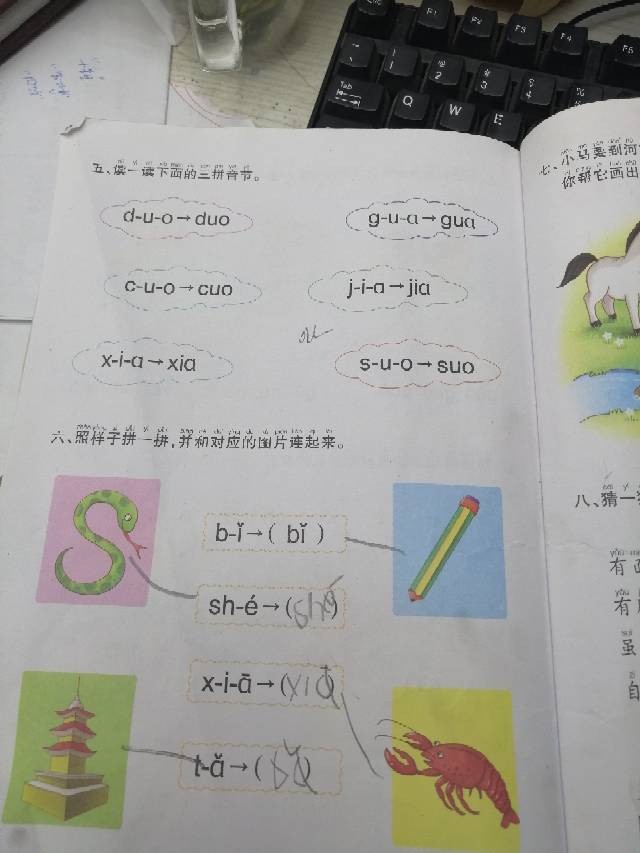 F1 F2 F3 F4 F5
1 @ 2 # 3 4 %
Tab Q W E
五、读一读下面的三拼音节。
d-u-o→duo
g-u-a→gua
c-u-o→cuo
j-i-a→jia
x-i-a→xia
s-u-o→suo
六、照样子拼一拼,并和对应的图片连起来。
b-ǐ→( bǐ )
sh-é→(shé)
x-i-ā→(xiā)
t-ǎ→(tǎ)
七、小马要到河
你帮它画出
八、猜一
有
yǒu
有
虽
自